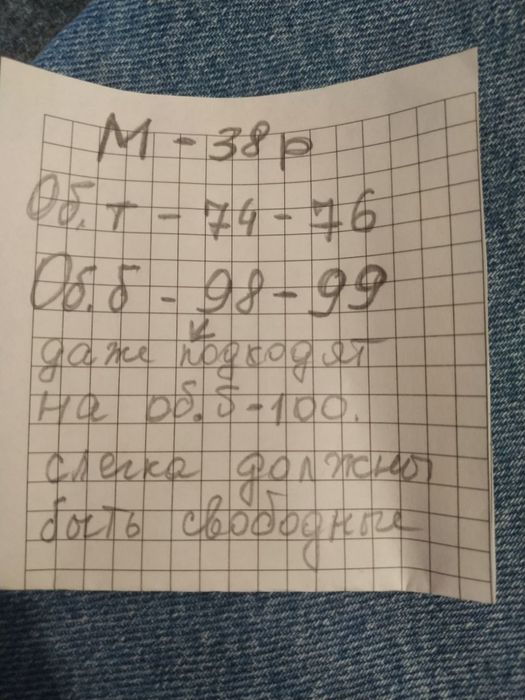 М - 38р
Об. т - 74 - 76
Об. б - 98 - 99
даже подходят
на об. б - 100.
слегка должны
быть свободные